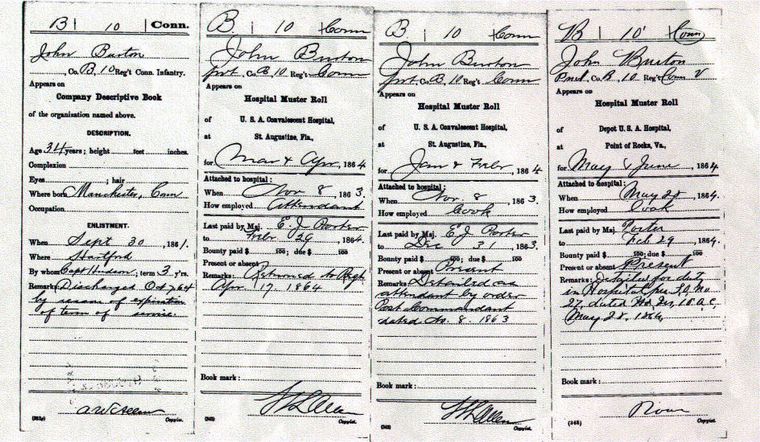 B | 10 | Conn.
John Burton
Co. B, 10 Reg't Conn. Infantry.
Appears on
Company Descriptive Book
of the organization named above.
DESCRIPTION.
Age 34 years; height feet inches.
Complexion
Eyes ; hair
Where born Manchester, Conn
Occupation
ENLISTMENT.
When Sept 30, 1861.
Where Hartford
By whom Capt Hudson, term 3 y'rs.
Remarks: Discharged Oct 7 64
by reason of expiration
of term of service.
Copyist.
B | 10 | Conn
John Burton
Pvt, Co. B, 10 Reg't Conn
Appears on
Hospital Muster Roll
of U. S. A. Convalescent Hospital,
at St. Augustine, Fla.,
for Mar & Apr, 1864
Attached to hospital:
When Nov 8, 1863
How employed Attendant
Last paid by Maj. E. J. Porter
to Feb 29, 1864.
Bounty paid $ 100; due $ 100
Present or absent
Remarks: Returned to Regt
Apr 17, 1864
Book mark:
Copyist.
B | 10 | Conn
John Burton
Pvt, Co. B, 10 Reg't Conn
Appears on
Hospital Muster Roll
of U. S. A. Convalescent Hospital,
at St. Augustine, Fla.,
for Jan & Febr, 1864
Attached to hospital:
When Nov 8, 1863
How employed Cook
Last paid by Maj. E. J. Porter
to Dec 31, 1863.
Bounty paid $ 100; due $ 100
Present or absent Present
Remarks: Detailed as
attendant by order
Post Commandant
dated No. 8. 1863
Book mark:
Copyist.
B | 10 | Conn
John Burton
Co. B, 10 Reg't Conn V
Appears on
Hospital Muster Roll
of Depot U. S. A. Hospital,
at Point of Rocks, Va.,
for May & June, 1864
Attached to hospital:
When May 28, 1864.
How employed Cook
Last paid by Maj. Porter
to Feb 29, 1864.
Bounty paid $ 100; due $ 100
Present or absent Present
Remarks: Detailed for duty
in Hospital per S.O. No
27, dated Hd. Qrs. 10 a.c.
May 28, 1864
Book mark:
Copyist.